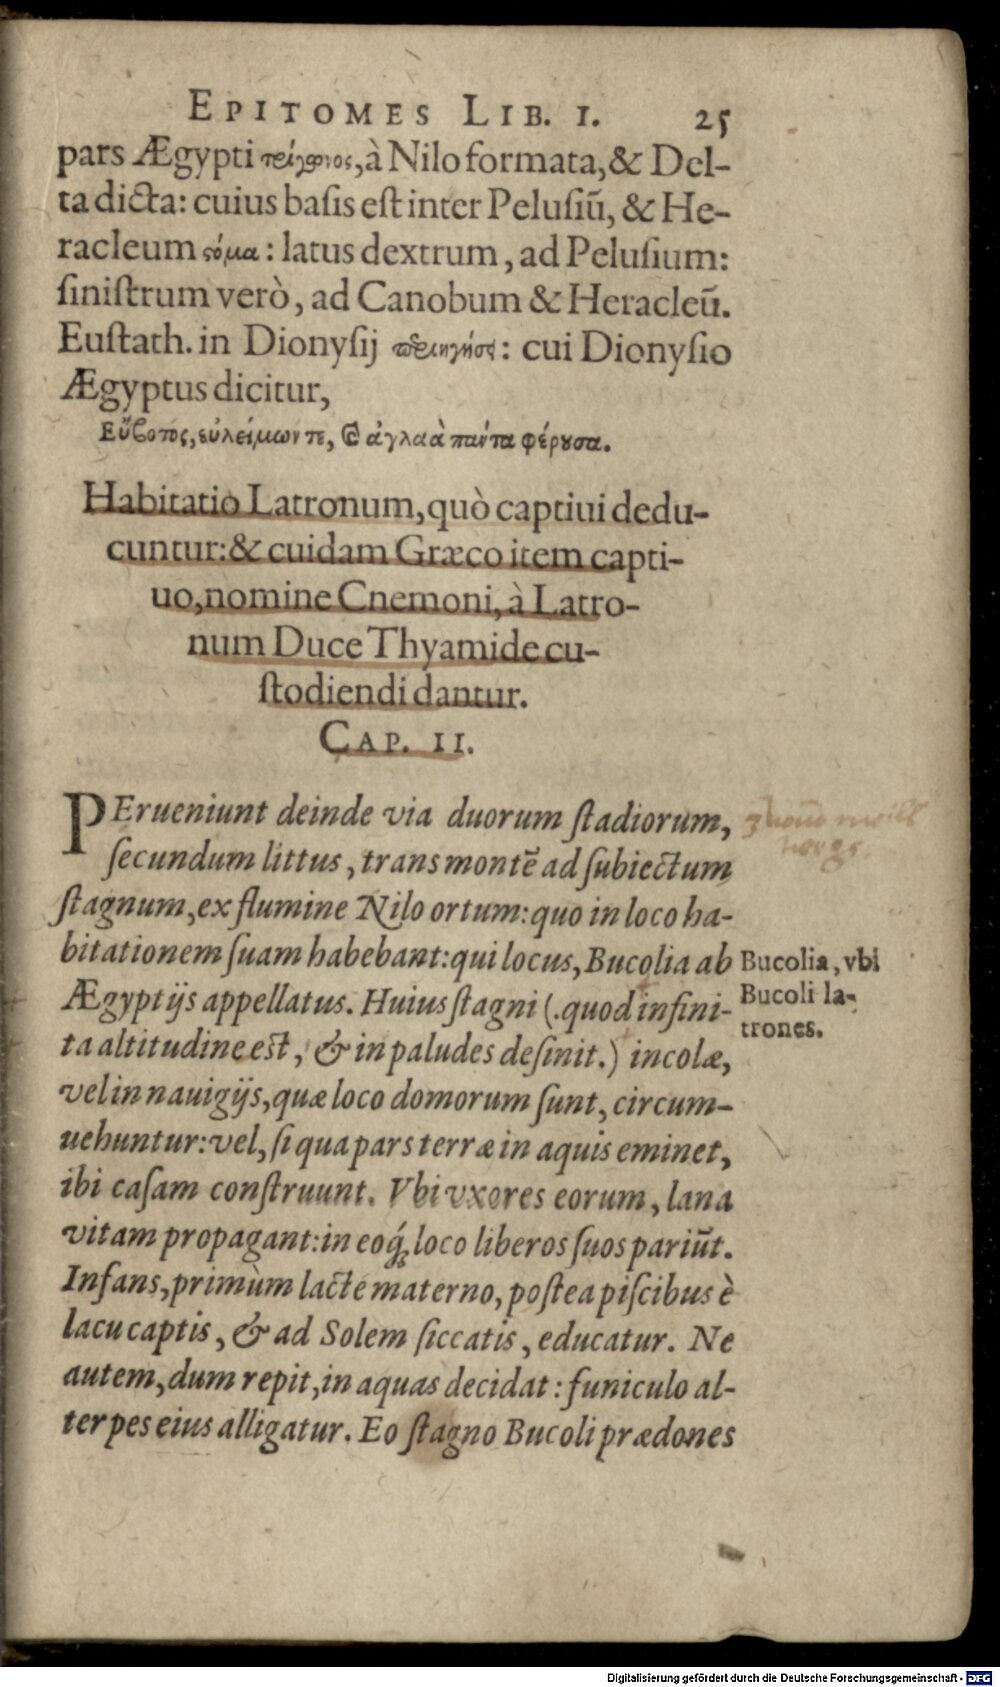 EPITOMES LIB. I. 25
pars Ægypti τρίγωνος, à Nilo formata, & Del-
ta dicta: cuius basis est inter Pelusiũ, & He-
racleum ϛόμα: latus dextrum, ad Pelusium:
sinistrum verò, ad Canobum & Heracleũ.
Eustath. in Dionysij : cui Dionysio
Ægyptus dicitur,
Εὔβοτος, εὐλείμων τε, καὶ ἀγλαὰ πάντα φέρουσα.
Habitatio Latronum, quò captiui dedu-
cuntur: & cuidam Græco item capti-
uo, nomine Cnemoni, à Latro-
num Duce Thyamide cu-
stodiendi dantur.
CAP. II.
PErueniunt deinde via duorum stadiorum,
secundum littus, trans montẽ ad subiectum
stagnum, ex flumine Nilo ortum: quo in loco ha-
bitationem suam habebant: qui locus, Bucolia ab
Bucolia, vbi
Ægyptijs appellatus. Huius stagni (.quod infini-
Bucoli la-
trones.
ta altitudine est, & in paludes desinit.) incolæ,
vel in nauigijs, quæ loco domorum sunt, circum-
uehuntur: vel, si qua pars terræ in aquis eminet,
ibi casam construunt. Vbi vxores eorum, lana
vitam propagant: in eoq́; loco liberos suos pariũt.
Infans, primùm lacte materno, postea piscibus è
lacu captis, & ad Solem siccatis, educatur. Ne
autem, dum repit, in aquas decidat: funiculo al-
ter pes eius alligatur. Eo stagno Bucoli prædones
Digitalisierung gefördert durch die Deutsche Forschungsgemeinschaft - DFG